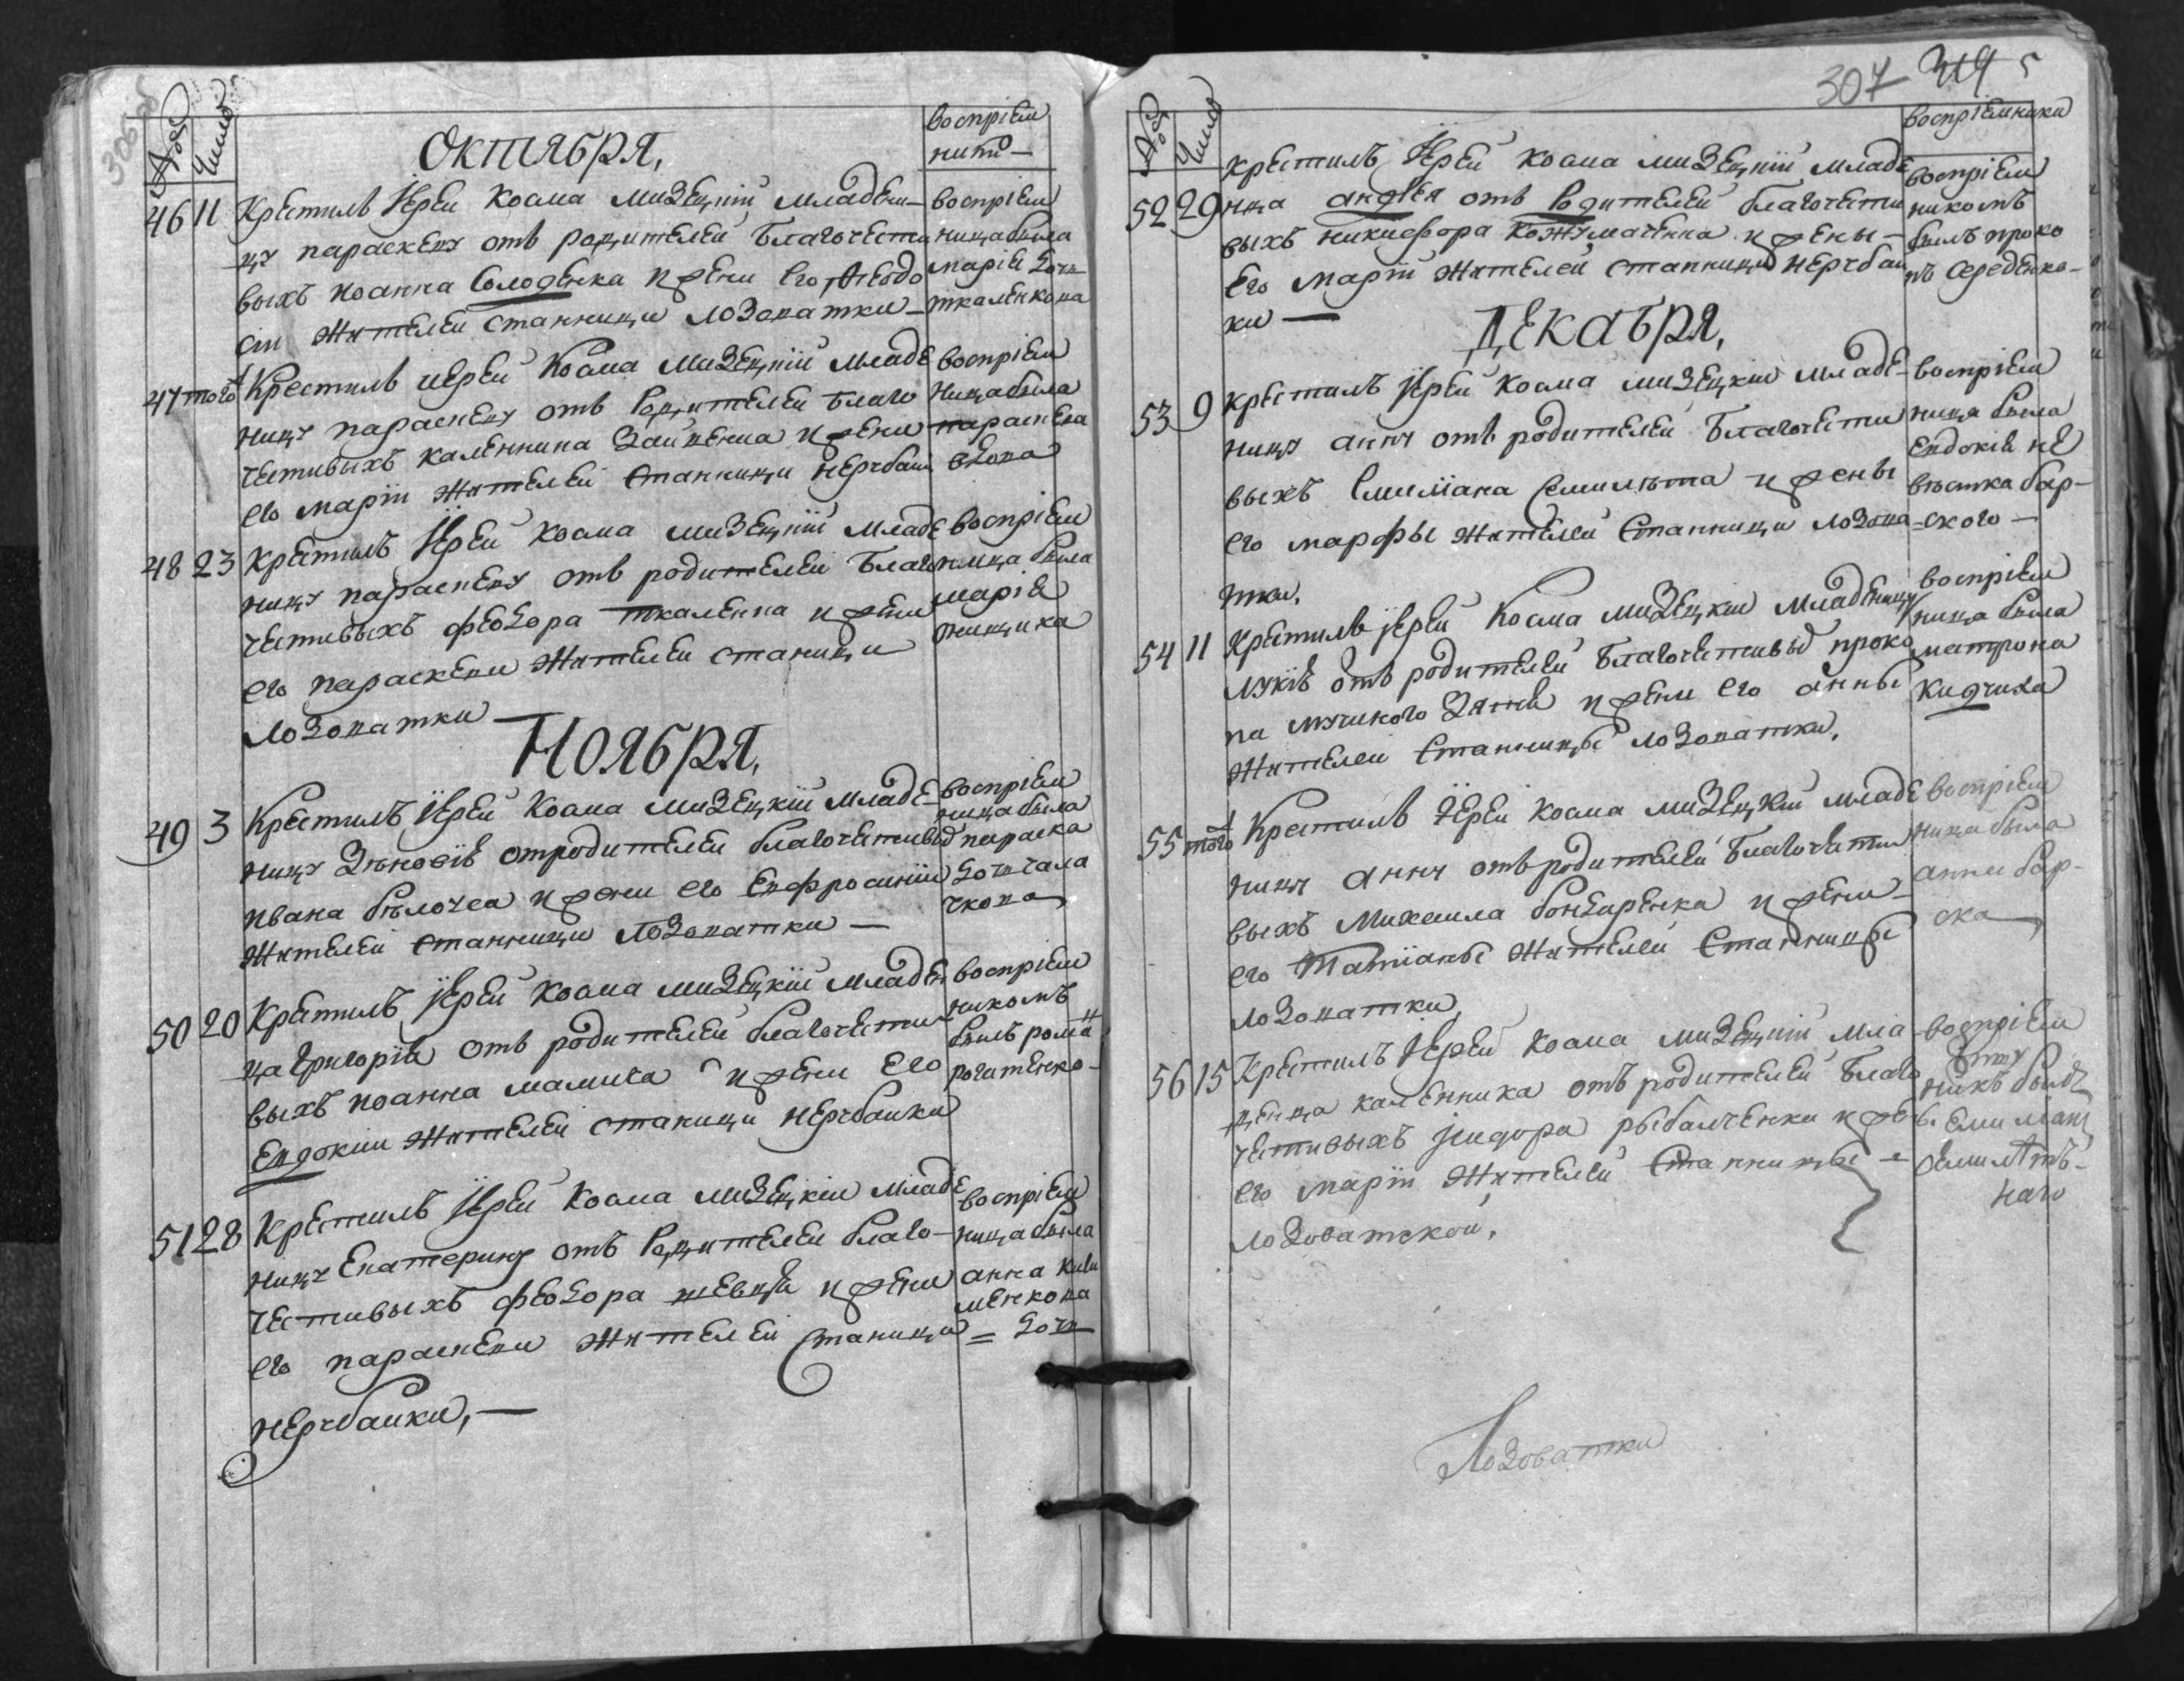 Число
Октября,
воспріем
ници —
46 11 Крестилъ Іерей Косма мизецкій младен—
цу параскеву отъ родителей благочести
выхъ иоанна Солоденка и жени Его Феодо
сіи жителей Станници лозоватки —
воспріем
ница била
марія дочь
ткаленкова
47 того Крестилъ иерей Косма мизецкій младе
ницу параскеву отъ Родителей благо
честивыхъ каленника Заиченка и жени
его маріи жителей Станници нерубаи
воспріем
ница била
параскева
вдова
48 23 Крестилъ Іерей Косма мизецкій младе
ницу параскеву отъ родителей благо
честивыхъ феодора ткаленка и жени
его параскеви жителей станици
лозоватки —
воспріем
ница била
марія
Ноября,
49 3 Крестилъ Іерей Косма мизецкій младе—
ницу Зѣновію от родителей благочестивыд
ивана бѣлоуса и жени его Евфросиніи
жителей станници лозоватки —
воспріем
ница била
параска
дочь гала
50 20 Крестилъ Іерей Косма мизецкій младен
ца григорія отъ родителей благочести
выхъ иоанна мамича и жени Его
Евдокии жителей станици нерубаики
воспріем
никомъ
билъ романъ
рогатенко—
51 28 Крестилъ Іерей Косма мизецкій младе
ницу Екатерину отъ Родителей благо—
честивыхъ феодора шевца и жени
его параскеви жителей станици =
нерубаики, —
воспріем
ница била
анна кли
менкова
дочь
307
Число
воспріемники
52 29 крестилъ Іерей косма мизецкій младе
нца андрея отъ Родителей благочести
выхъ никифора кожумяченка и жены —
его маріи жителей станници нерубаи
ки —
воспріем
никомъ
билъ проко
пъ Середенко—
Декабря,
53 9 крестилъ Іерей косма мизецкій младе—
ницу анну отъ родителей благочести
выхъ Емиліана Семилѣта и жены
его марфы жителей Станници лозова—
тки,
воспріем
ница била
Евдокія не
вѣстка бар—
ского —
54 11 Крестилъ Іерей Косма мизецкій младеницу
лукію отъ родителей благочестивыд проко
па мучного зятя и жени его анны
жителей Станницы лозоватки,
воспріем
ница била
матрона
55 того Крестилъ Іерей косма мизецкій младе
ницу анну отъ родителей благочести
выхъ михаила бондаренка и жени—
его татіаны жителей Станницы
лозоватки,
воспріем
ница была
анна бар—
ска
56 15 Крестилъ Іерей косма мизецкій мла—
денца каленника отъ родителей благо
честивыхъ Ісидора рыбалченки и жен.
его маріи жителей Станницы —
лозоватской,
воспріем
никъ былъ
Емиліанъ
Семилѣт—
наго
Лозоватки